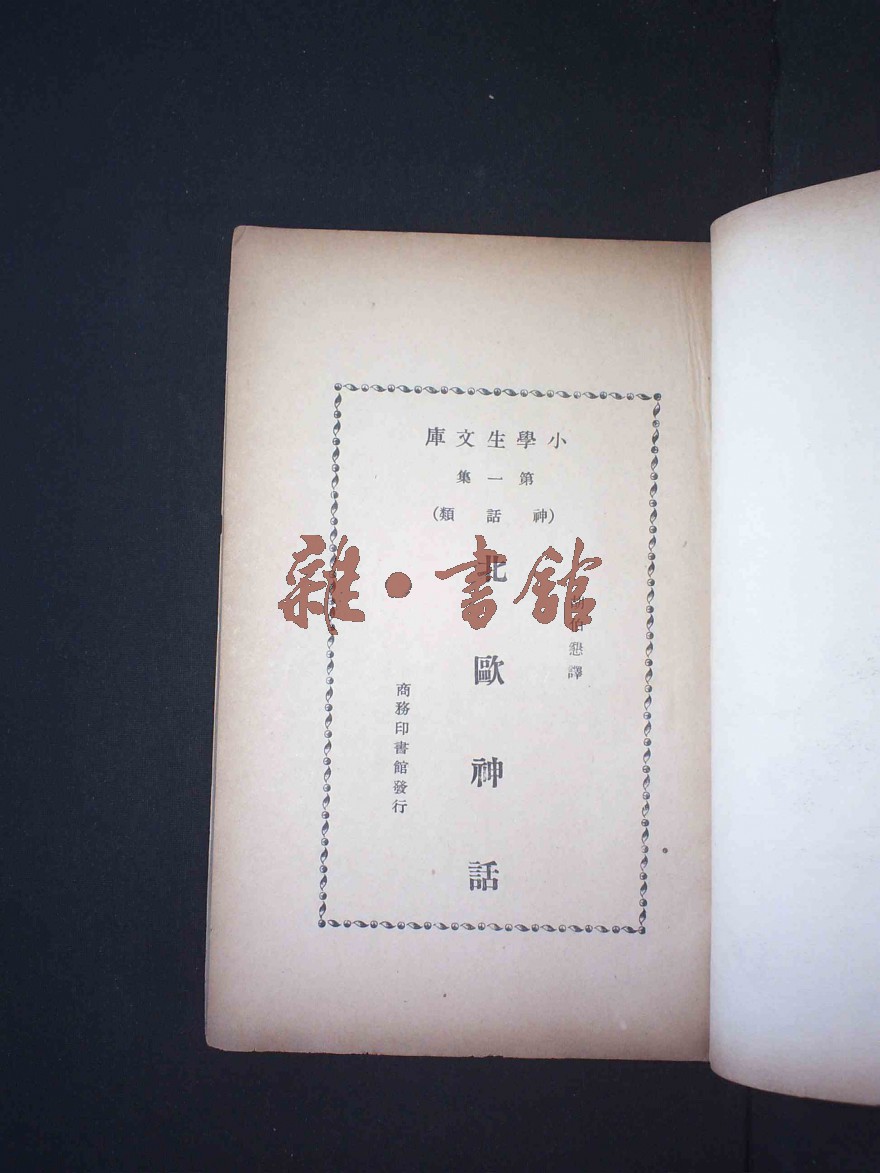 小學生文庫
第一集
(神話類)
胡伯懇譯
北歐神話
商務印書館發行
雜·書館